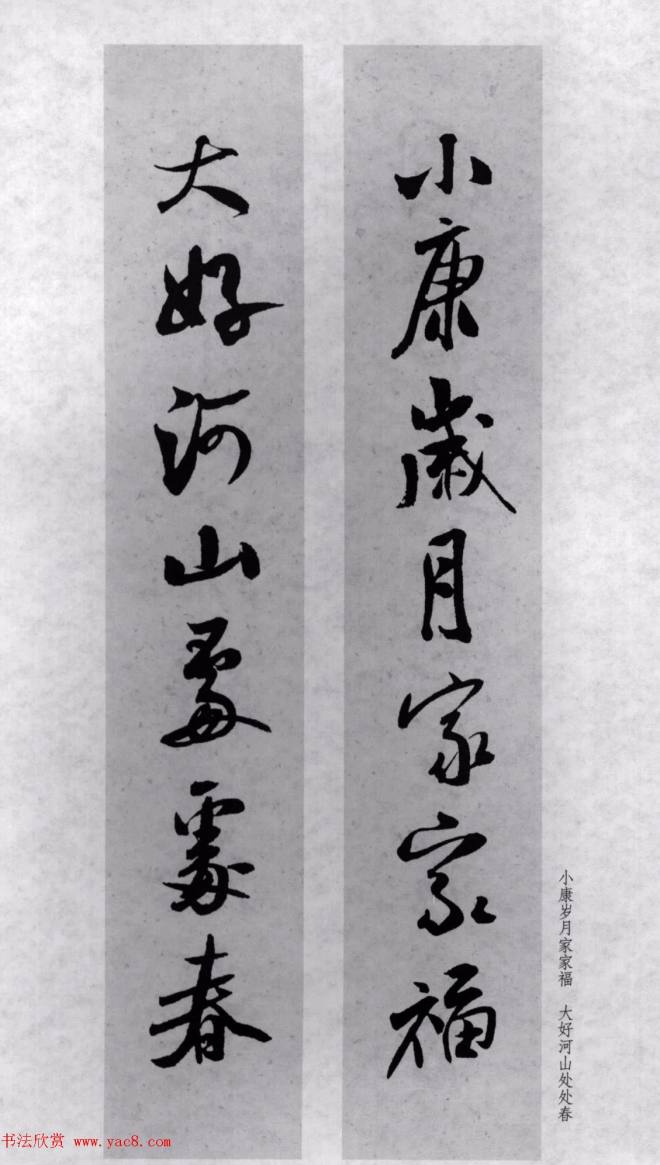 小康歲月家家福
大好河山處處春
小康岁月家家福 大好河山处处春
书法欣赏 www.yac8.com